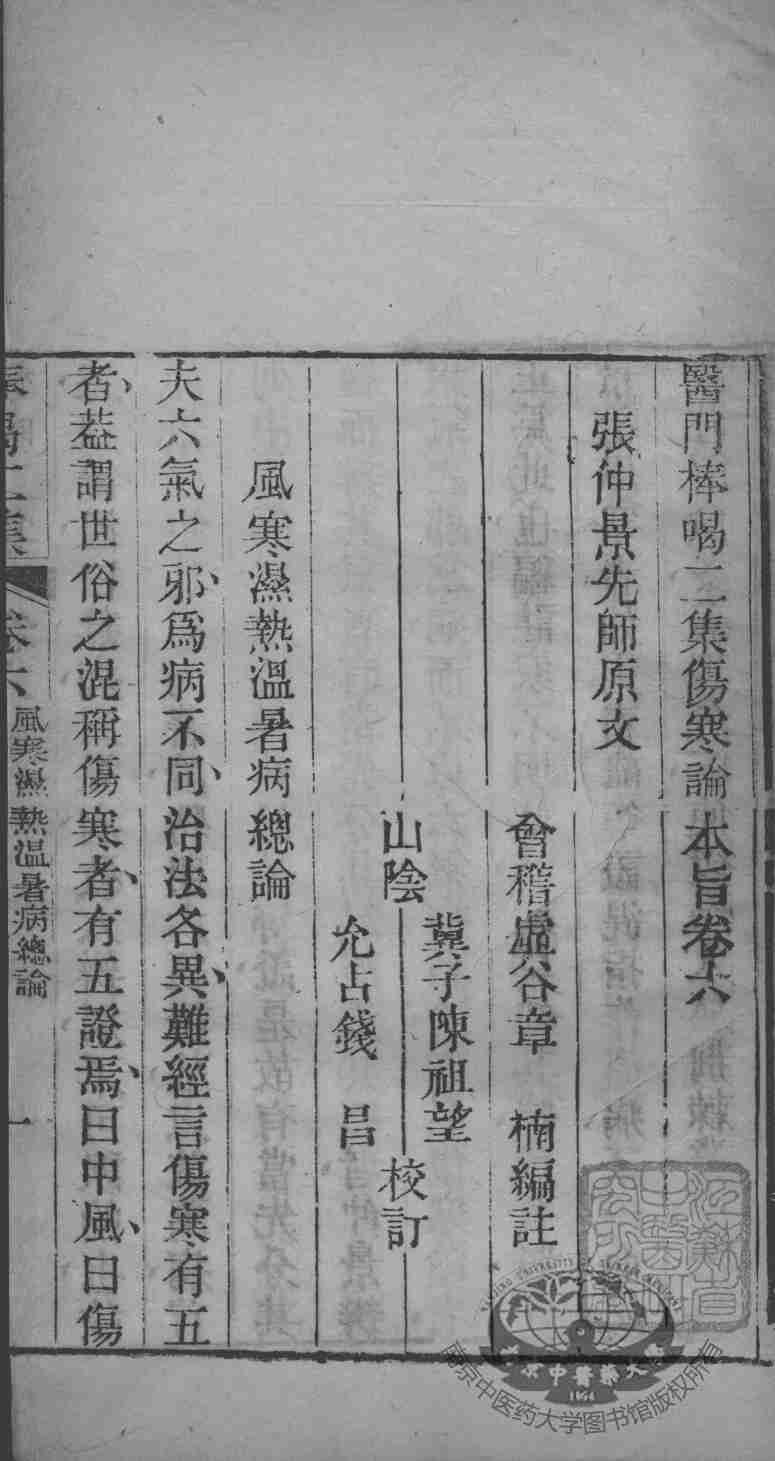 醫門棒喝二集傷寒論本旨卷六
張仲景先師原文
會稽虛谷章　楠編註
山陰
冀子陳祖望
允占錢　昌
校訂
風寒濕熱溫暑病總論
夫六氣之邪、爲病不同、治法各異、難經言傷寒有五
者、葢謂世俗之混稱傷寒者、有五證焉、曰中風、曰傷
棒喝二集
卷六
風寒濕熱溫暑病總論
一
江蘇省中醫
研究所
南京中醫藥大學
1954
南京中医药大学图书馆版权所有